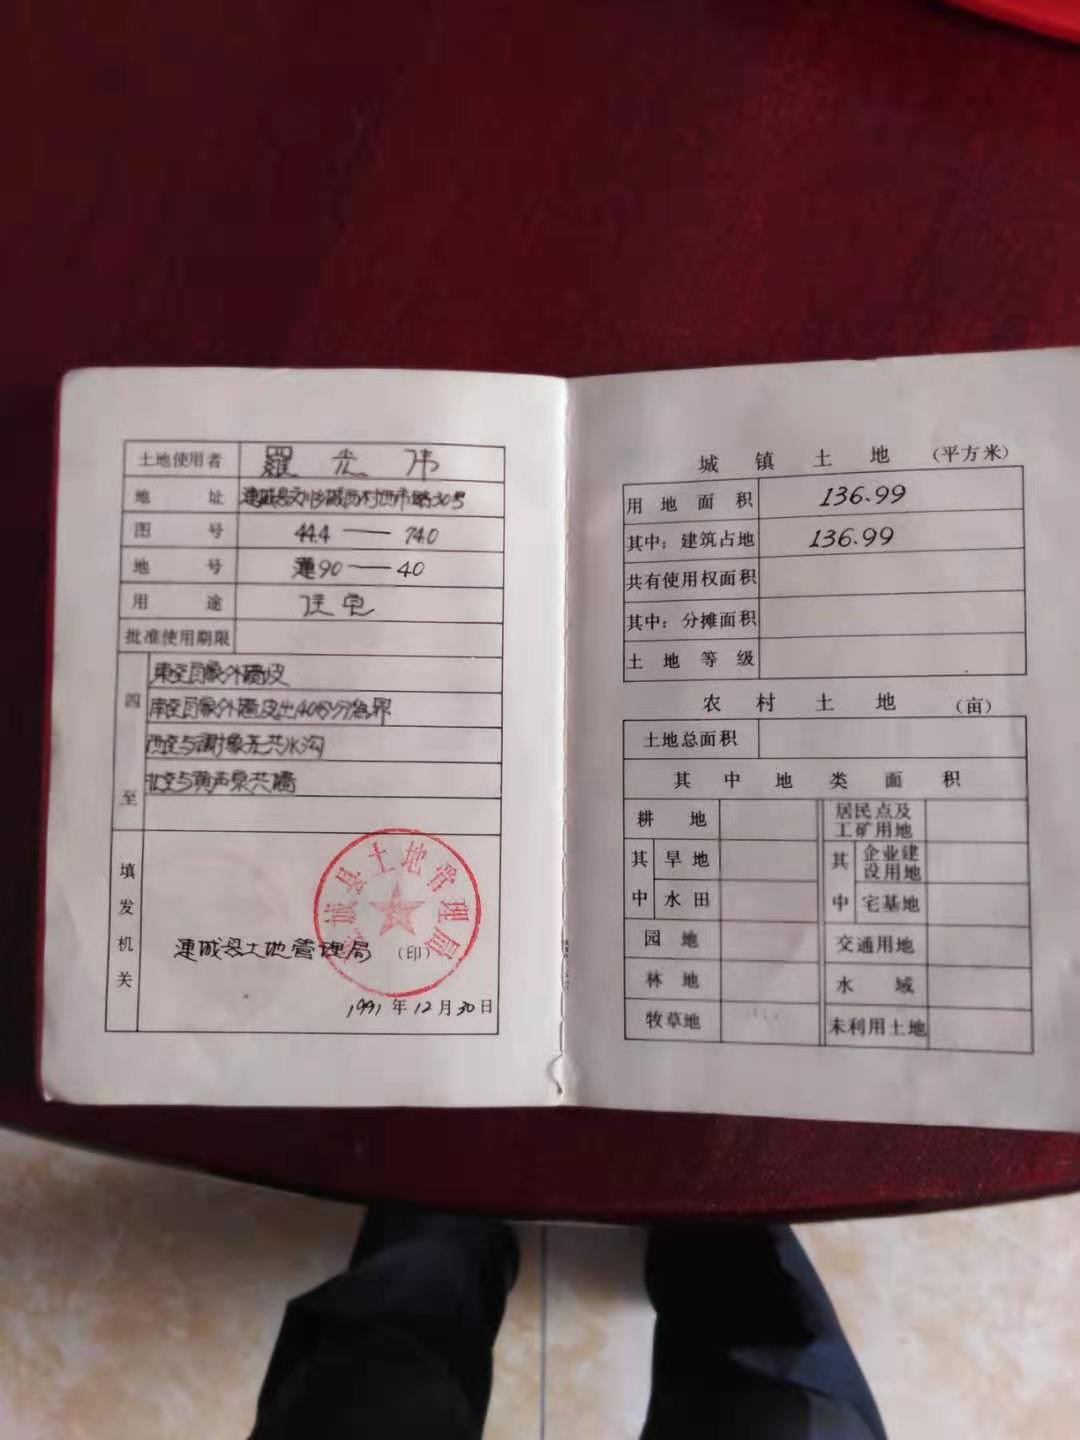 土地使用者 羅光伟
地址 連城县文川乡城西村西市路30号
图号 44.4——74.0
地号 蓮90——40
用途 住宅
批准使用期限
四至
東至自家外墻皮
南至自家外墻皮出40公分為界
西至与謝家亢共水沟
北至与黄声泉共墻
填发机关
連城县土地管理局 (印)
城县土地管理局
1991年12月30日
城镇土地 (平方米)
用地面积 136.99
其中：建筑占地 136.99
共有使用权面积
其中：分摊面积
土地等级
农村土地 (亩)
土地总面积
其中地类面积
耕地 居民点及工矿用地
其中 旱地 其中 企业建设用地
水田 宅基地
园地 交通用地
林地 水域
牧草地 未利用土地